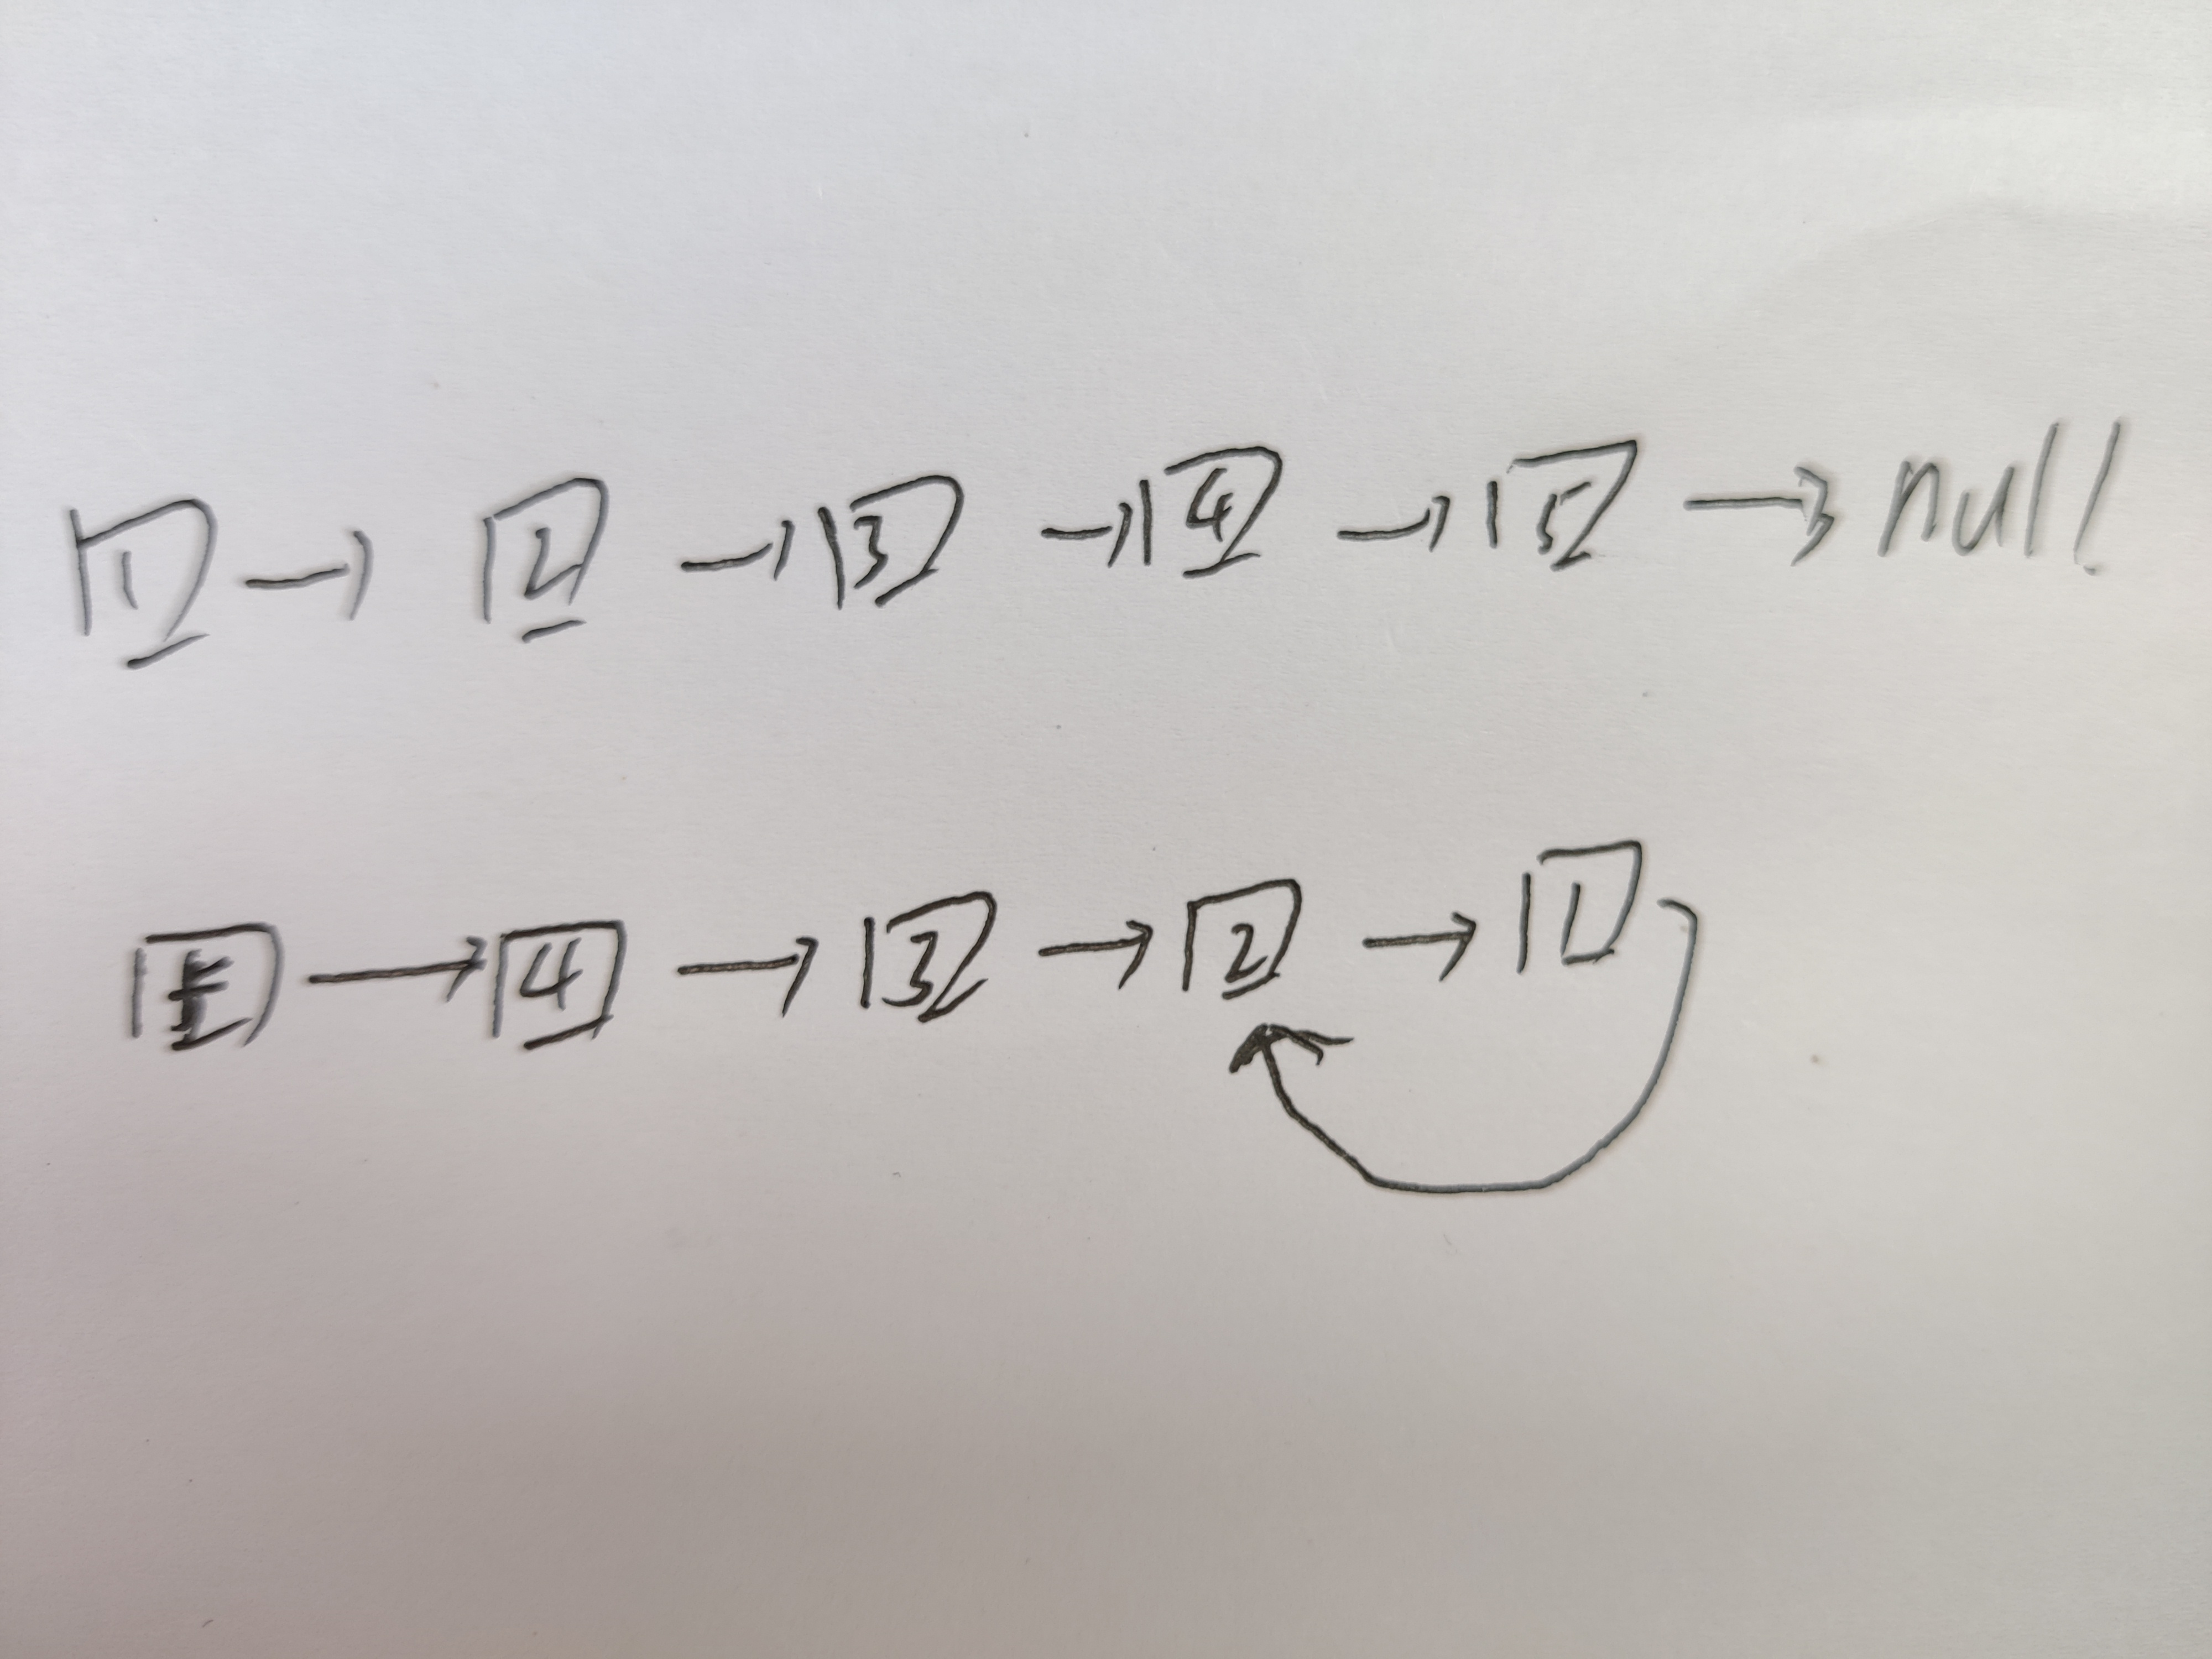 1 → 2 → 3 → 4 → 5 → null
5 → 4 → 3 → 2 → 1